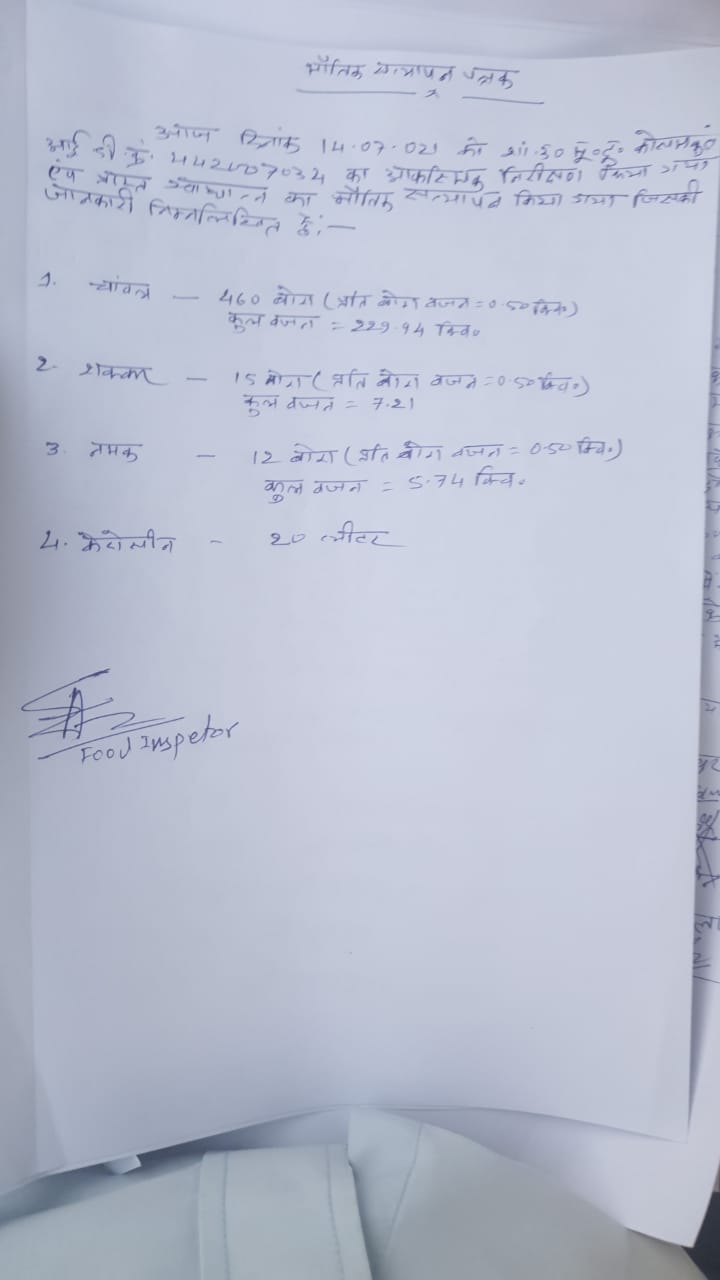 भौतिक सत्यापन पत्रक
आज दिनांक 14.07.021 को शा.उ०मू०दु० कोलमकुं
आई डी.क्रं. 442007034 का आकस्मिक निरीक्षण किया गया
एंव प्राप्त खाद्यान्न का भौतिक सत्यापन किया गया जिसकी
जानकारी निम्नलिखित है:—
1. चांवल — 460 बोरा (प्रति बोरा वजन = 0.50 क्वि०)
कुल वजन = 229.94 क्वि०
2. शक्कर — 15 बोरा (प्रति बोरा वजन = 0.50 क्वि०)
कुल वजन = 7.21
3. नमक — 12 बोरा (प्रति बोरा वजन = 0.50 क्वि०)
कुल वजन = 5.74 क्वि०
4. केरोसीन - 20 लीटर
Food Inspetor